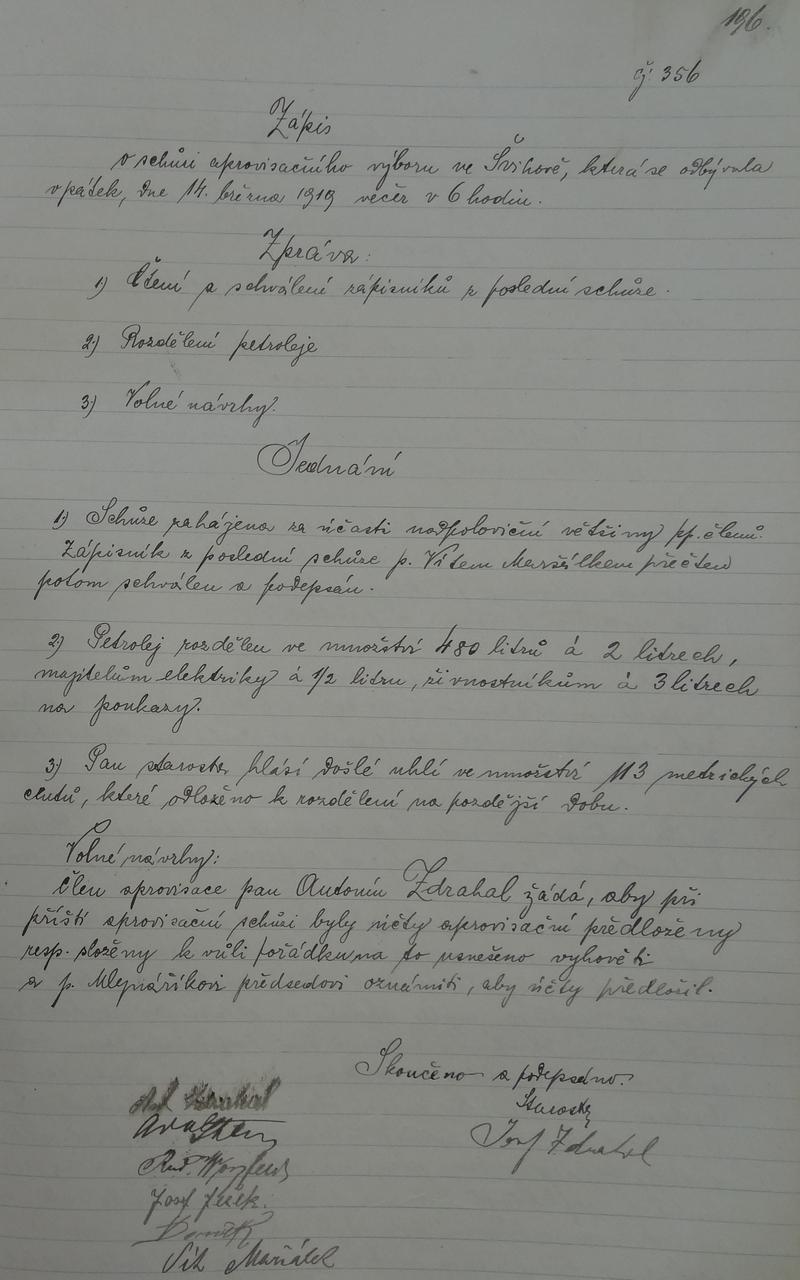 196.
čj: 356
Zápis
o schůzi aprovisačního výboru ve Švihově, která se odbývala
v pátek, dne 14. března 1919 večer v 6 hodin.
Zpráva:
1) Čtení a schválení zápisníků z poslední schůze.
2) Rozdělení petroleje
3) Volné návrhy.
Jednání
1) Schůze zahájena za účasti nadpoloviční většiny pp. členů.
Zápisník z poslední schůze p. Vítem Maršálkem přečten
potom schválen a podepsán.
2) Petrolej rozdělen ve množství 480 litrů á 2 litrech,
majitelům elektriky á 1/2 litru, živnostníkům á 3 litrech
na poukazy.
3) Pan starosta hlásí došlé uhlí ve množství 113 metrických
centů, které odloženo k rozdělení na pozdější dobu.
Volné návrhy:
Člen aprovisace pan Antonín Zdrahal žádá, aby při
příští aprovisační schůzi byly účty aprovisační předloženy
resp. složeny k vůli pořádku na to usnešeno vyhověti
a p. Mlynáříkovi předsedovi oznámiti, aby účty předložil.
Skončeno a podepsáno.
Starosta
Josef Zdrahal
Ant. Zdrahal
Rud.
Josef
Vít Maršálek